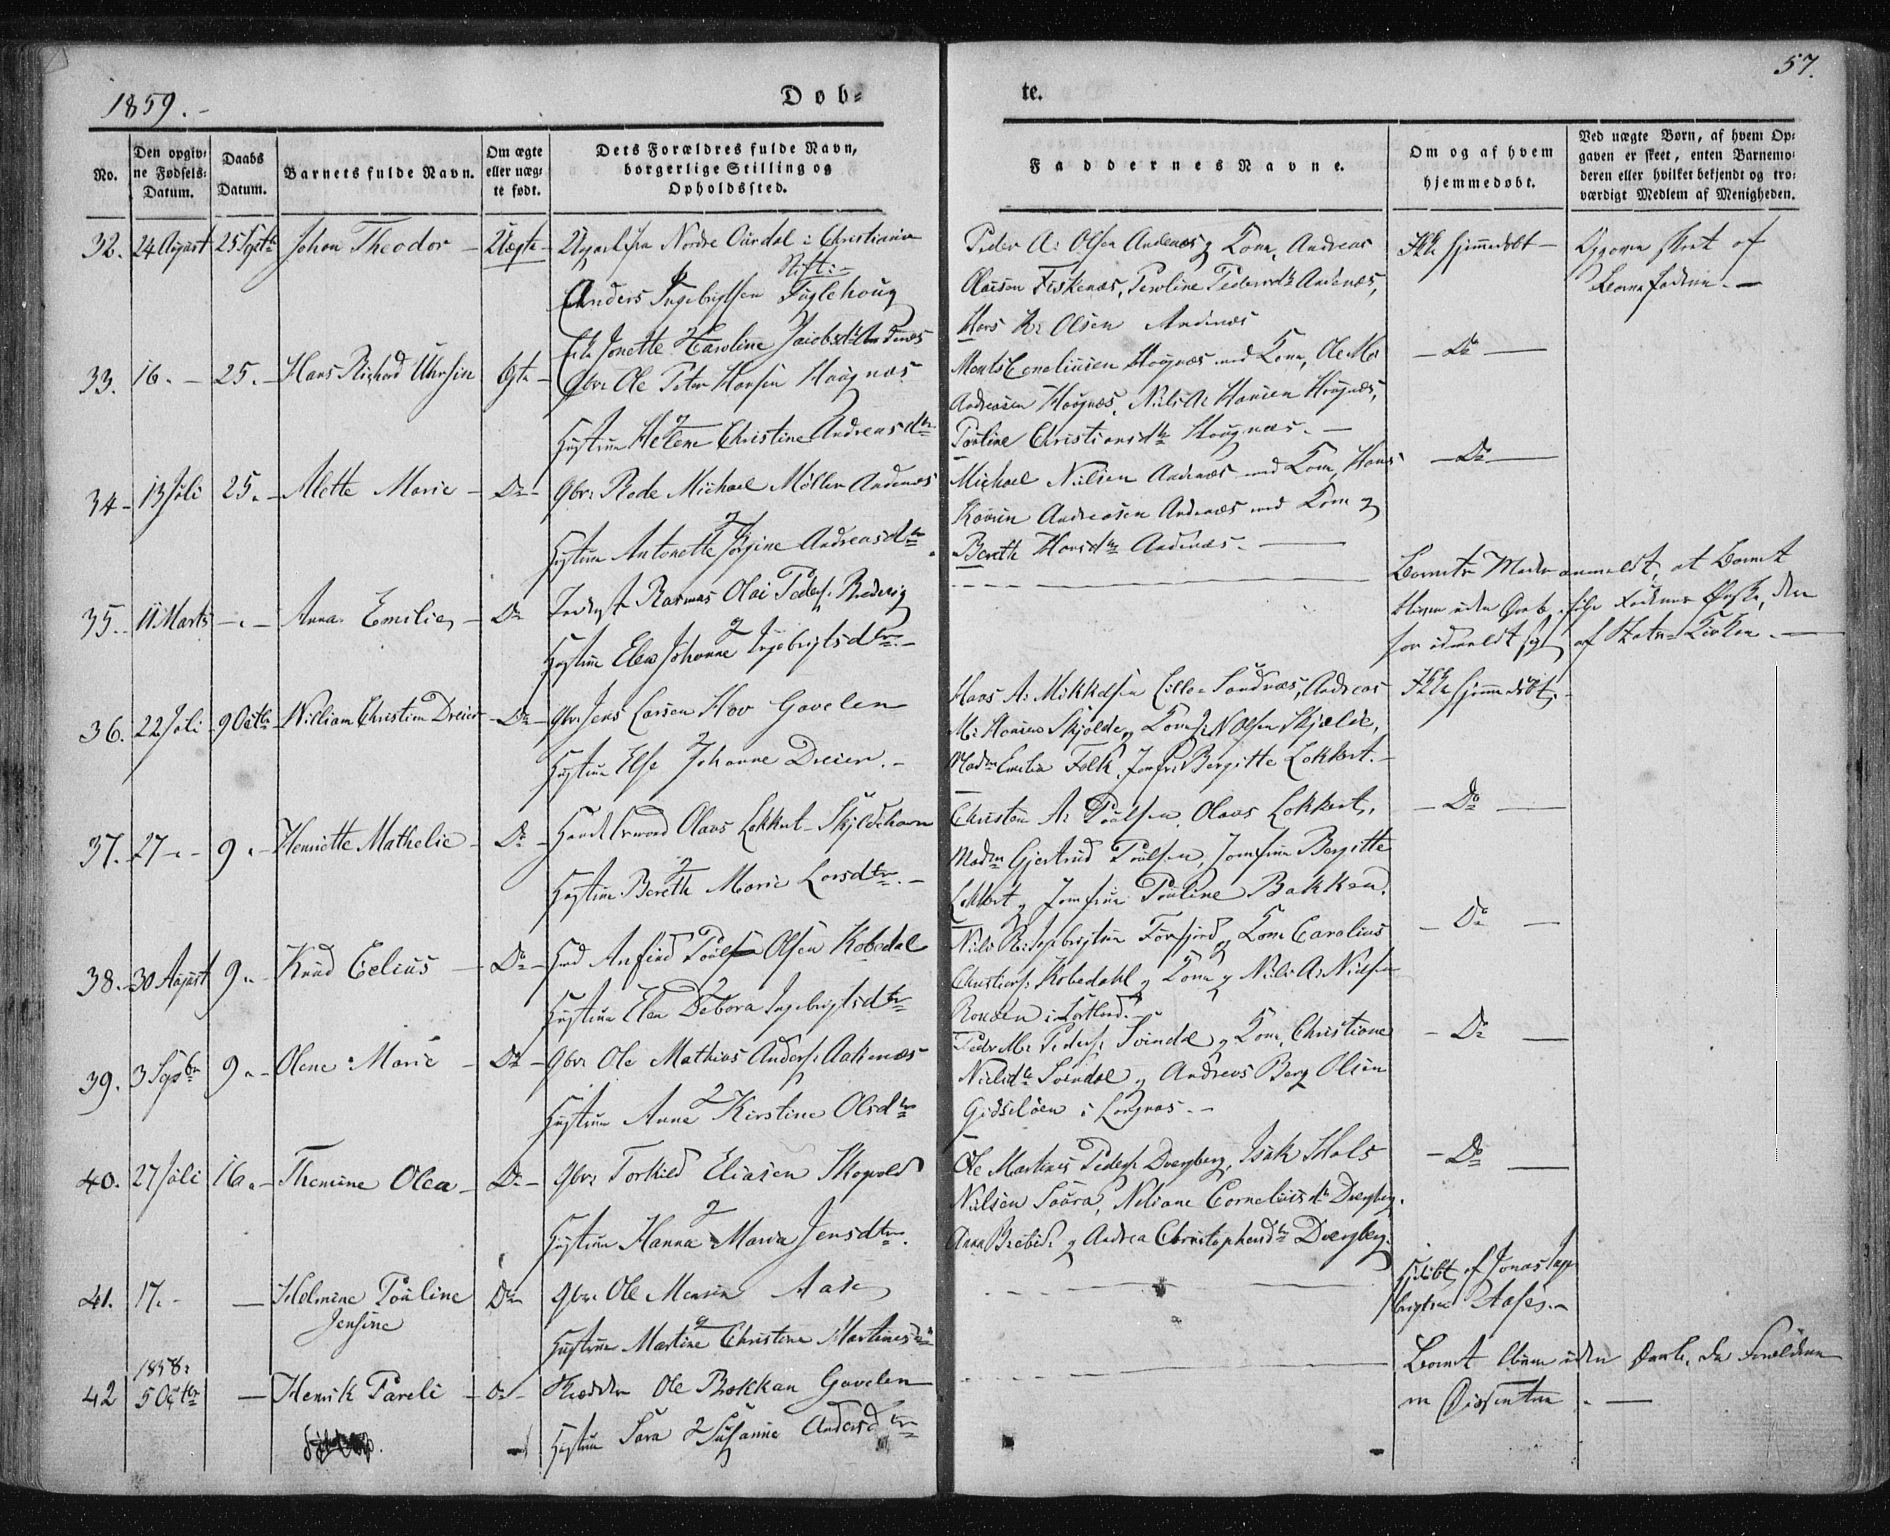 1859.
Døb=
te.
57.
No.
Den opgiv=
ne Fødsels=
Datum.
Daabs
Datum.
Barnets fulde Navn.
Om ægte
eller uæg=
te født.
Dets Forældres fulde Navn,
borgerlige Stilling og
Opholdssted.
Faddernes Navne.
Om og af hvem
hjemmedøbt.
Ved uægte Børn, af hvem Op=
gaven er skeet, enten Barnemo=
deren eller hvilket bekjendt og tro=
værdigt Medlem af Menigheden.
32. 24 August 25 Septbr Johan Theodor Uægte Ungkarl fra Nordre Ourdal i Christiania
Stift:
Anders Ingebrigtsen Fuglehoug
Jonette Karoline Jacobsdtr Andenæs
Peder A: Olsen Andenæs og Kone, Andreas
Olaisen Fiskenæs, Peroline Pedersdtr Andenæs,
Hans Kr Olsen Andenæs
Ikke hjemmedøbt
skeet af
Barnefaderen.
33. 16. 25. Hans Richard Uhrsin Ægte Gbr: Ole Peter Hansen Haugnæs
og
Hustrue Helene Christine Andreasdtr
Ments Corneliussen Haugnæs med Kone, Ole M
Andreasen Haugnæs, Niels A: Hansen Haugnæs,
Pauline Christiansdtr Haugnæs.
Do
34 13 Juli 25. Alette Marie Do Gbr: Rode Michael Møller Andenæs
og
Hustrue Antonette Jørgine Andreasdtr
Michael Nielsen Andenæs med Kone, Hans
Andreasen Andenæs med Kone og
Bereth Hansdtr Andenæs.
Do
35. 11 Marts Anna Emilie Do Inderst Rasmus Olai Peders. Bredevig
og
Hustrue Elen Johanna Ingebrigtsdtr
Barnets Moder anmeldt, at Barnet
bliver uden Daab, ifølge Faderens Ønske, der
har udmeldt sig af Stats-Kirken.
36. 22 Juli 9 Octbr William Christian Dreier Do Gbr: Jens Larsen Hov Gavelen
og
Hustrue Else Johanne Dreier.
Hans A: Mikkelsen Lille Sandnæs, Andreas
M: Hansen Skjolde og Kone, N Olsen Skjolde,
Madm Emelia Falk, Jomfr: Bergitte Lokkert.
Ikke hjemmedøbt.
37. 27 9 Henriette Mathelie Do Handelsmand Olaus Lokkert Skjoldehavn
og
Hustrue Bereth Marie Larsdtr.
Christen A: Paulsen, Olaus Lokkert,
Madm Gjertrud Paulsen, Jomfrue Bergitte
Lokkert og Jomfrue Pauline Bakken.
Do
38. 30 August 9. Knud Edlius Do Anfind Olsen Kobedal
og
Hustrue Elen Debora Ingebrigtsdtr
Niels R: Ingebrigtsen Forfjord og Kone Carolius
Christians: Kobedahl og Kone og Niels A: Nielsen
i Sortland.
Do
39. 3 Sepbr 9. Olene Marie Do Gbr: Ole Mathias Anders: Aakenæs
og
Hustrue Anne Kirstine Olsdtr
Peder M: Peders: Svindal og Kone, Christiane
Nielsdtr Svindal og Andreas Berg Olsen
i Langnæs.
Do
40. 27 Juli 16. Themine Olea Do Gbr: Torkild Eliasen Skogvold
og
Hustrue Hanna Maria Jensdtr.
Ole Martinus Peders: Dverberg, Isak Hals
Nielsen Saura, Neliane Corneliusdtr Dverberg.
Anna og Andrea Christophersdtr Dverberg.
Do
41. 17. Helmine Pauline
Jensine
Do Gbr: Ole Monsen Aase
og
Hustrue Martine Christine Martinusdtr
Hjdøbt af Jonas Inge
brigtsen Aase.
1858.
42 5 Octbr Henrik Pareli Do Skrædder Ole Bakkan Gavelen
Hustrue Sara og Susanna Andersdtr
Barnet bliver uden Daab, da Forældrene
er Dissentere.